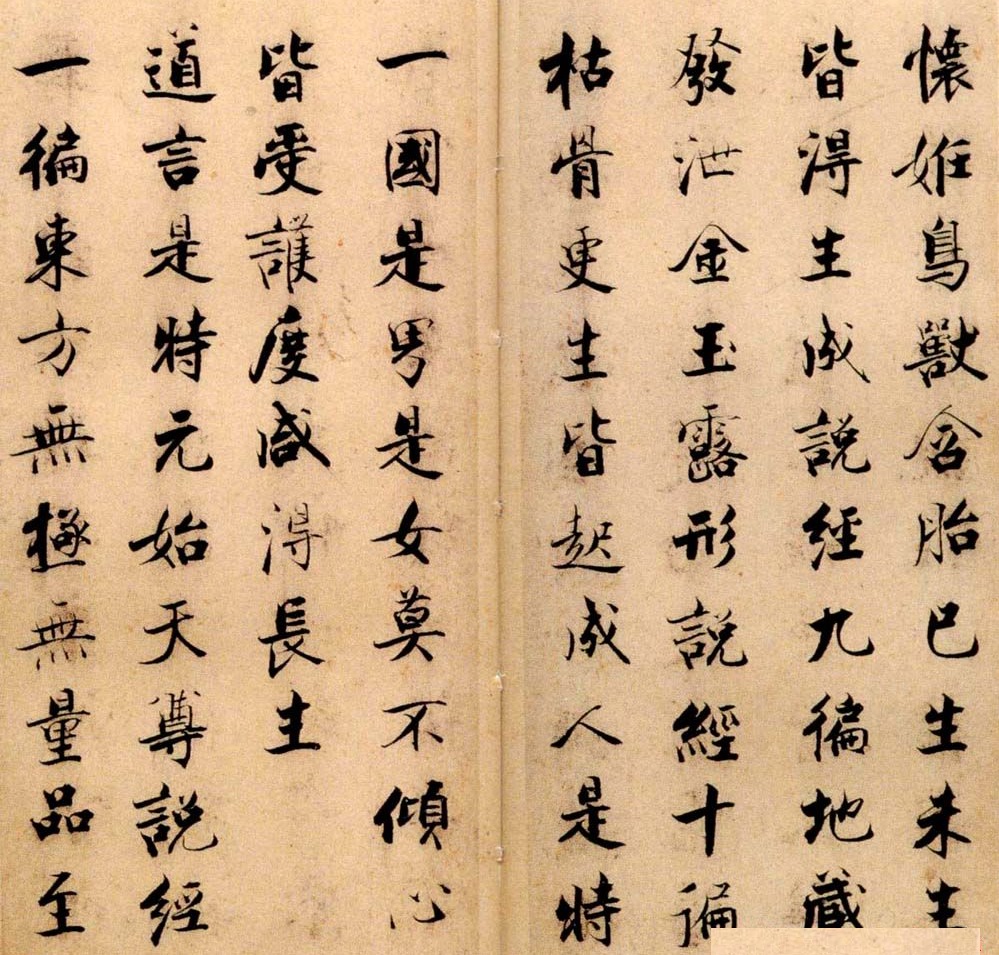 懷姙鳥獸含胎已生未生
皆淂生成説經九徧地藏
發泄金玉露形説經十徧
枯骨更生皆起成人是時
一國是男是女莫不傾心
皆受護度咸淂長生
道言是時元始天尊説經
一徧東方無極無量品至